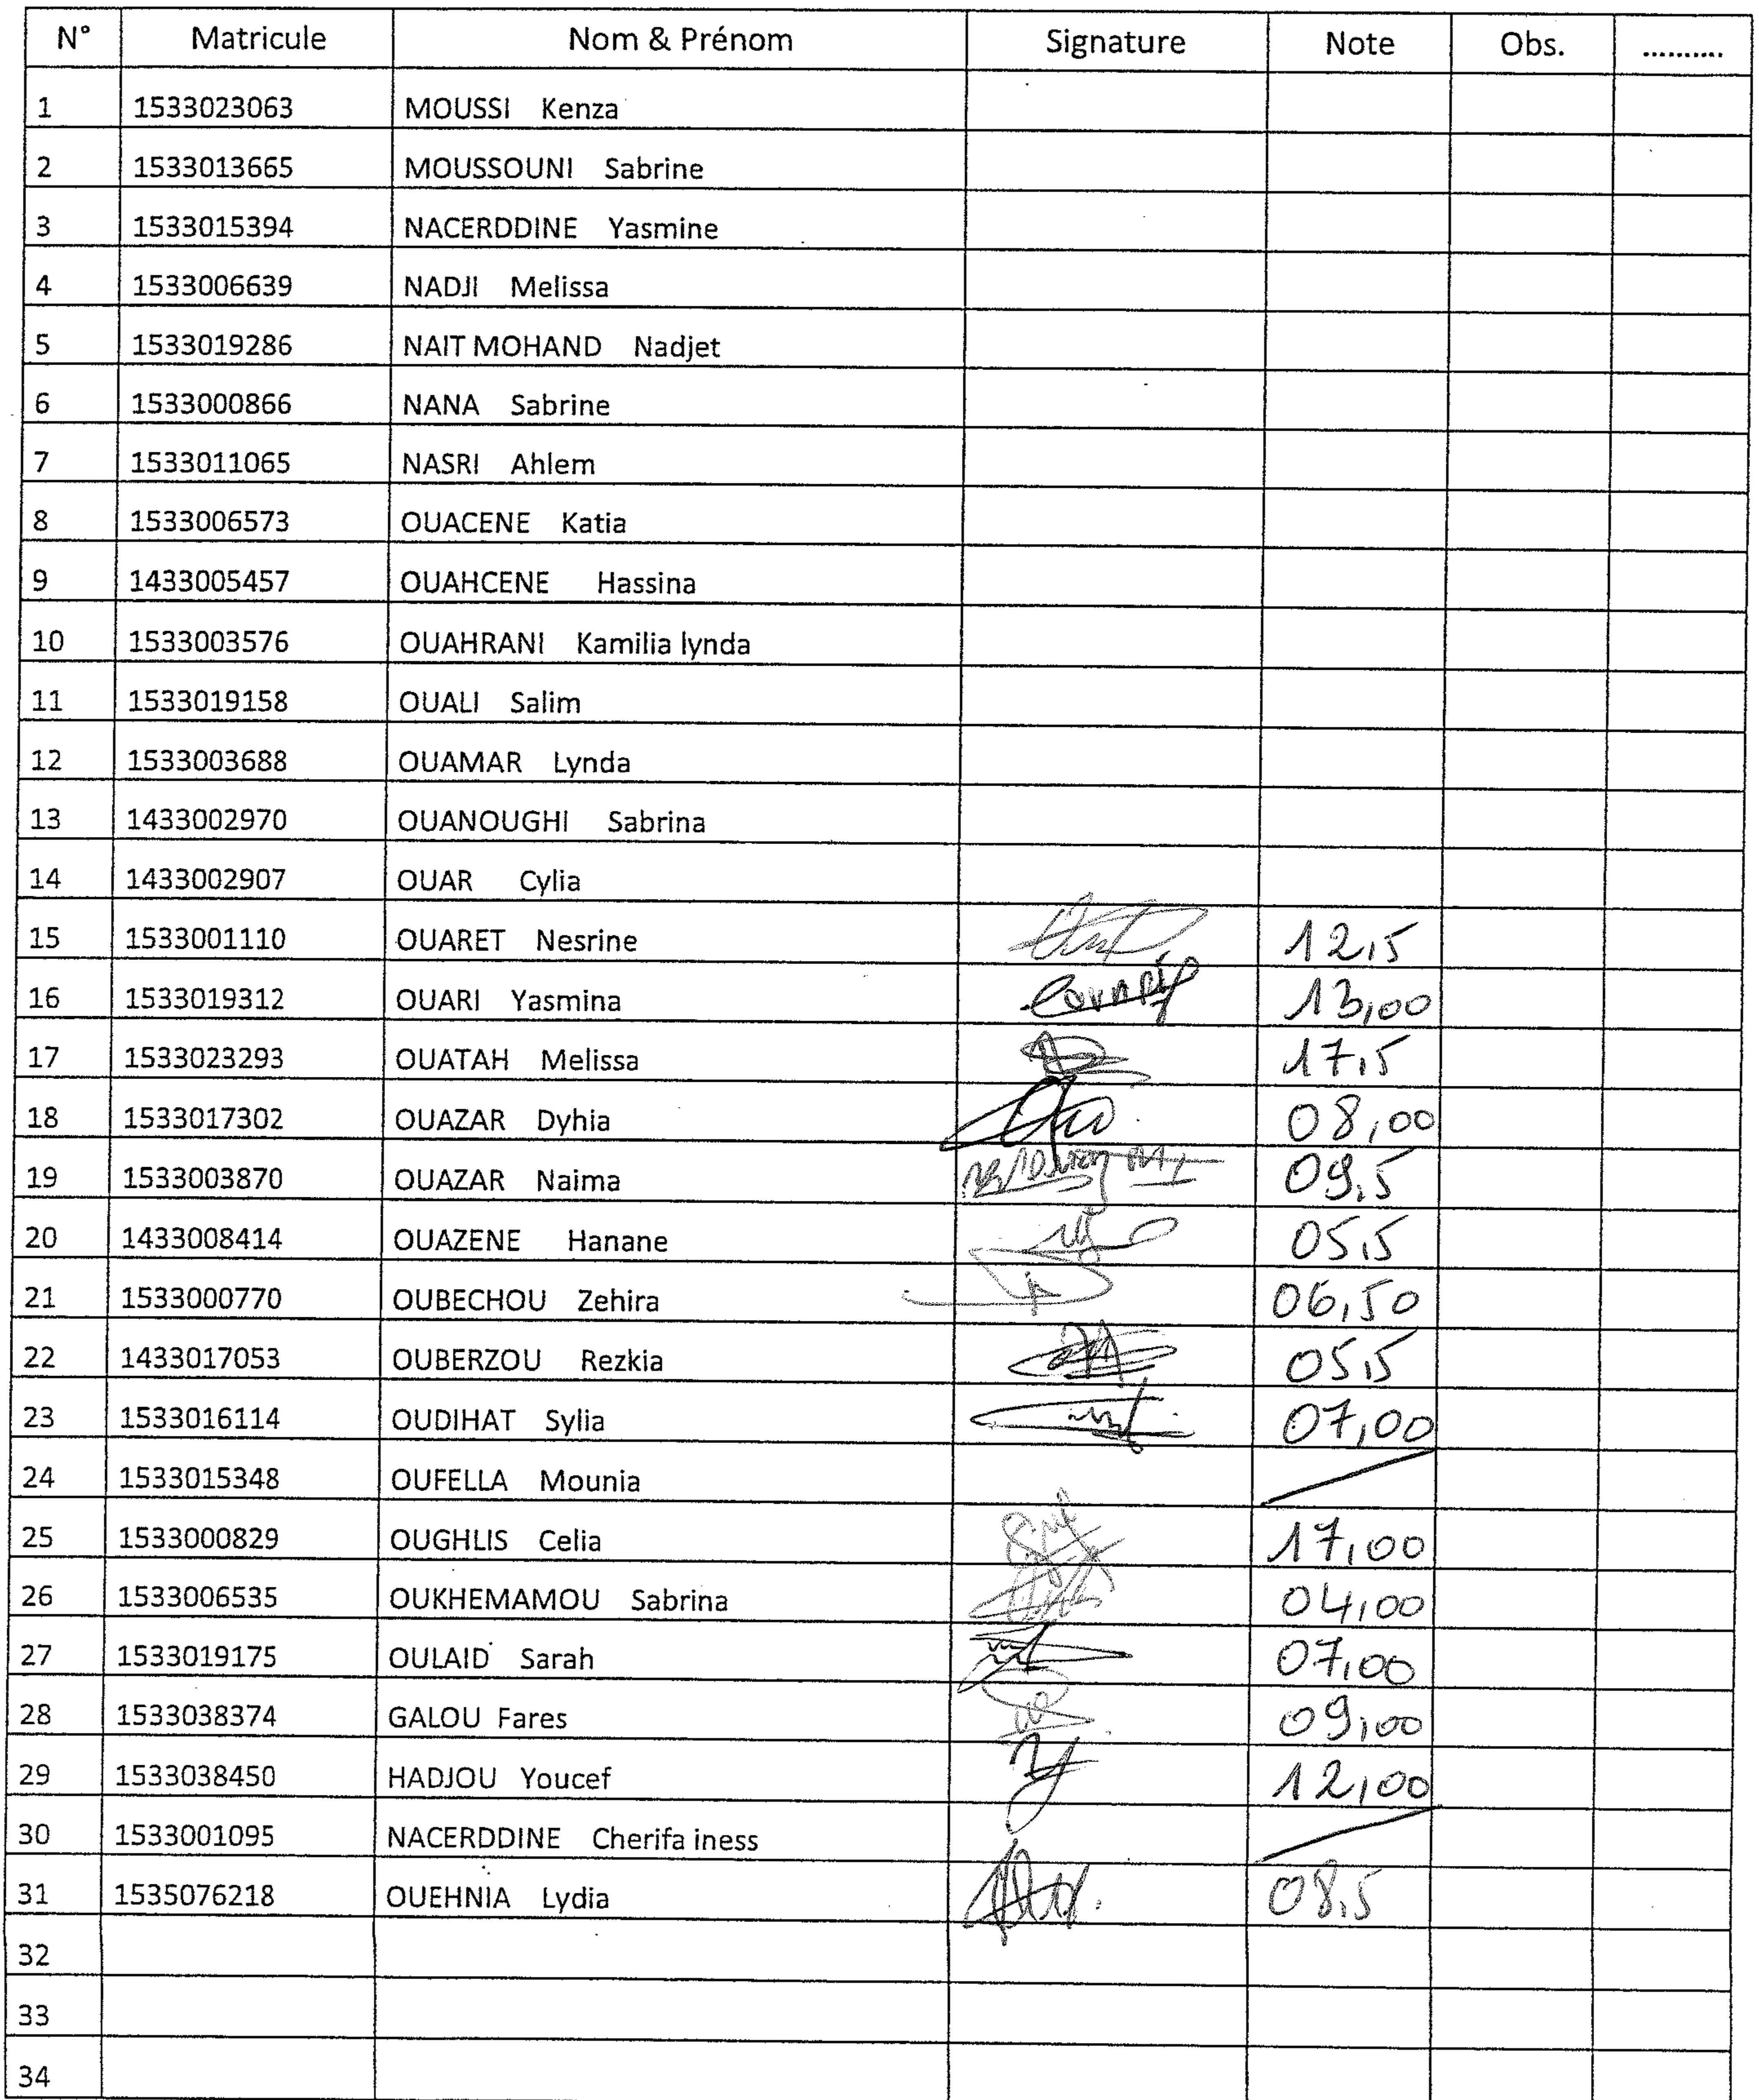 N° Matricule Nom & Prénom Signature Note Obs. ..........
1 1533023063 MOUSSI Kenza
2 1533013665 MOUSSOUNI Sabrine
3 1533015394 NACERDDINE Yasmine
4 1533006639 NADJI Melissa
5 1533019286 NAIT MOHAND Nadjet
6 1533000866 NANA Sabrine
7 1533011065 NASRI Ahlem
8 1533006573 OUACENE Katia
9 1433005457 OUAHCENE Hassina
10 1533003576 OUAHRANI Kamilia lynda
11 1533019158 OUALI Salim
12 1533003688 OUAMAR Lynda
13 1433002970 OUANOUGHI Sabrina
14 1433002907 OUAR Cylia
15 1533001110 OUARET Nesrine 12,5
16 1533019312 OUARI Yasmina 13,00
17 1533023293 OUATAH Melissa 17,5
18 1533017302 OUAZAR Dyhia 08,00
19 1533003870 OUAZAR Naima 09,5
20 1433008414 OUAZENE Hanane 05,5
21 1533000770 OUBECHOU Zehira 06,50
22 1433017053 OUBERZOU Rezkia 05,5
23 1533016114 OUDIHAT Sylia 07,00
24 1533015348 OUFELLA Mounia
25 1533000829 OUGHLIS Celia 17,00
26 1533006535 OUKHEMAMOU Sabrina 04,00
27 1533019175 OULAID Sarah 07,00
28 1533038374 GALOU Fares 09,00
29 1533038450 HADJOU Youcef 12,00
30 1533001095 NACERDDINE Cherifa iness
31 1535076218 OUEHNIA Lydia 08,5
32
33
34